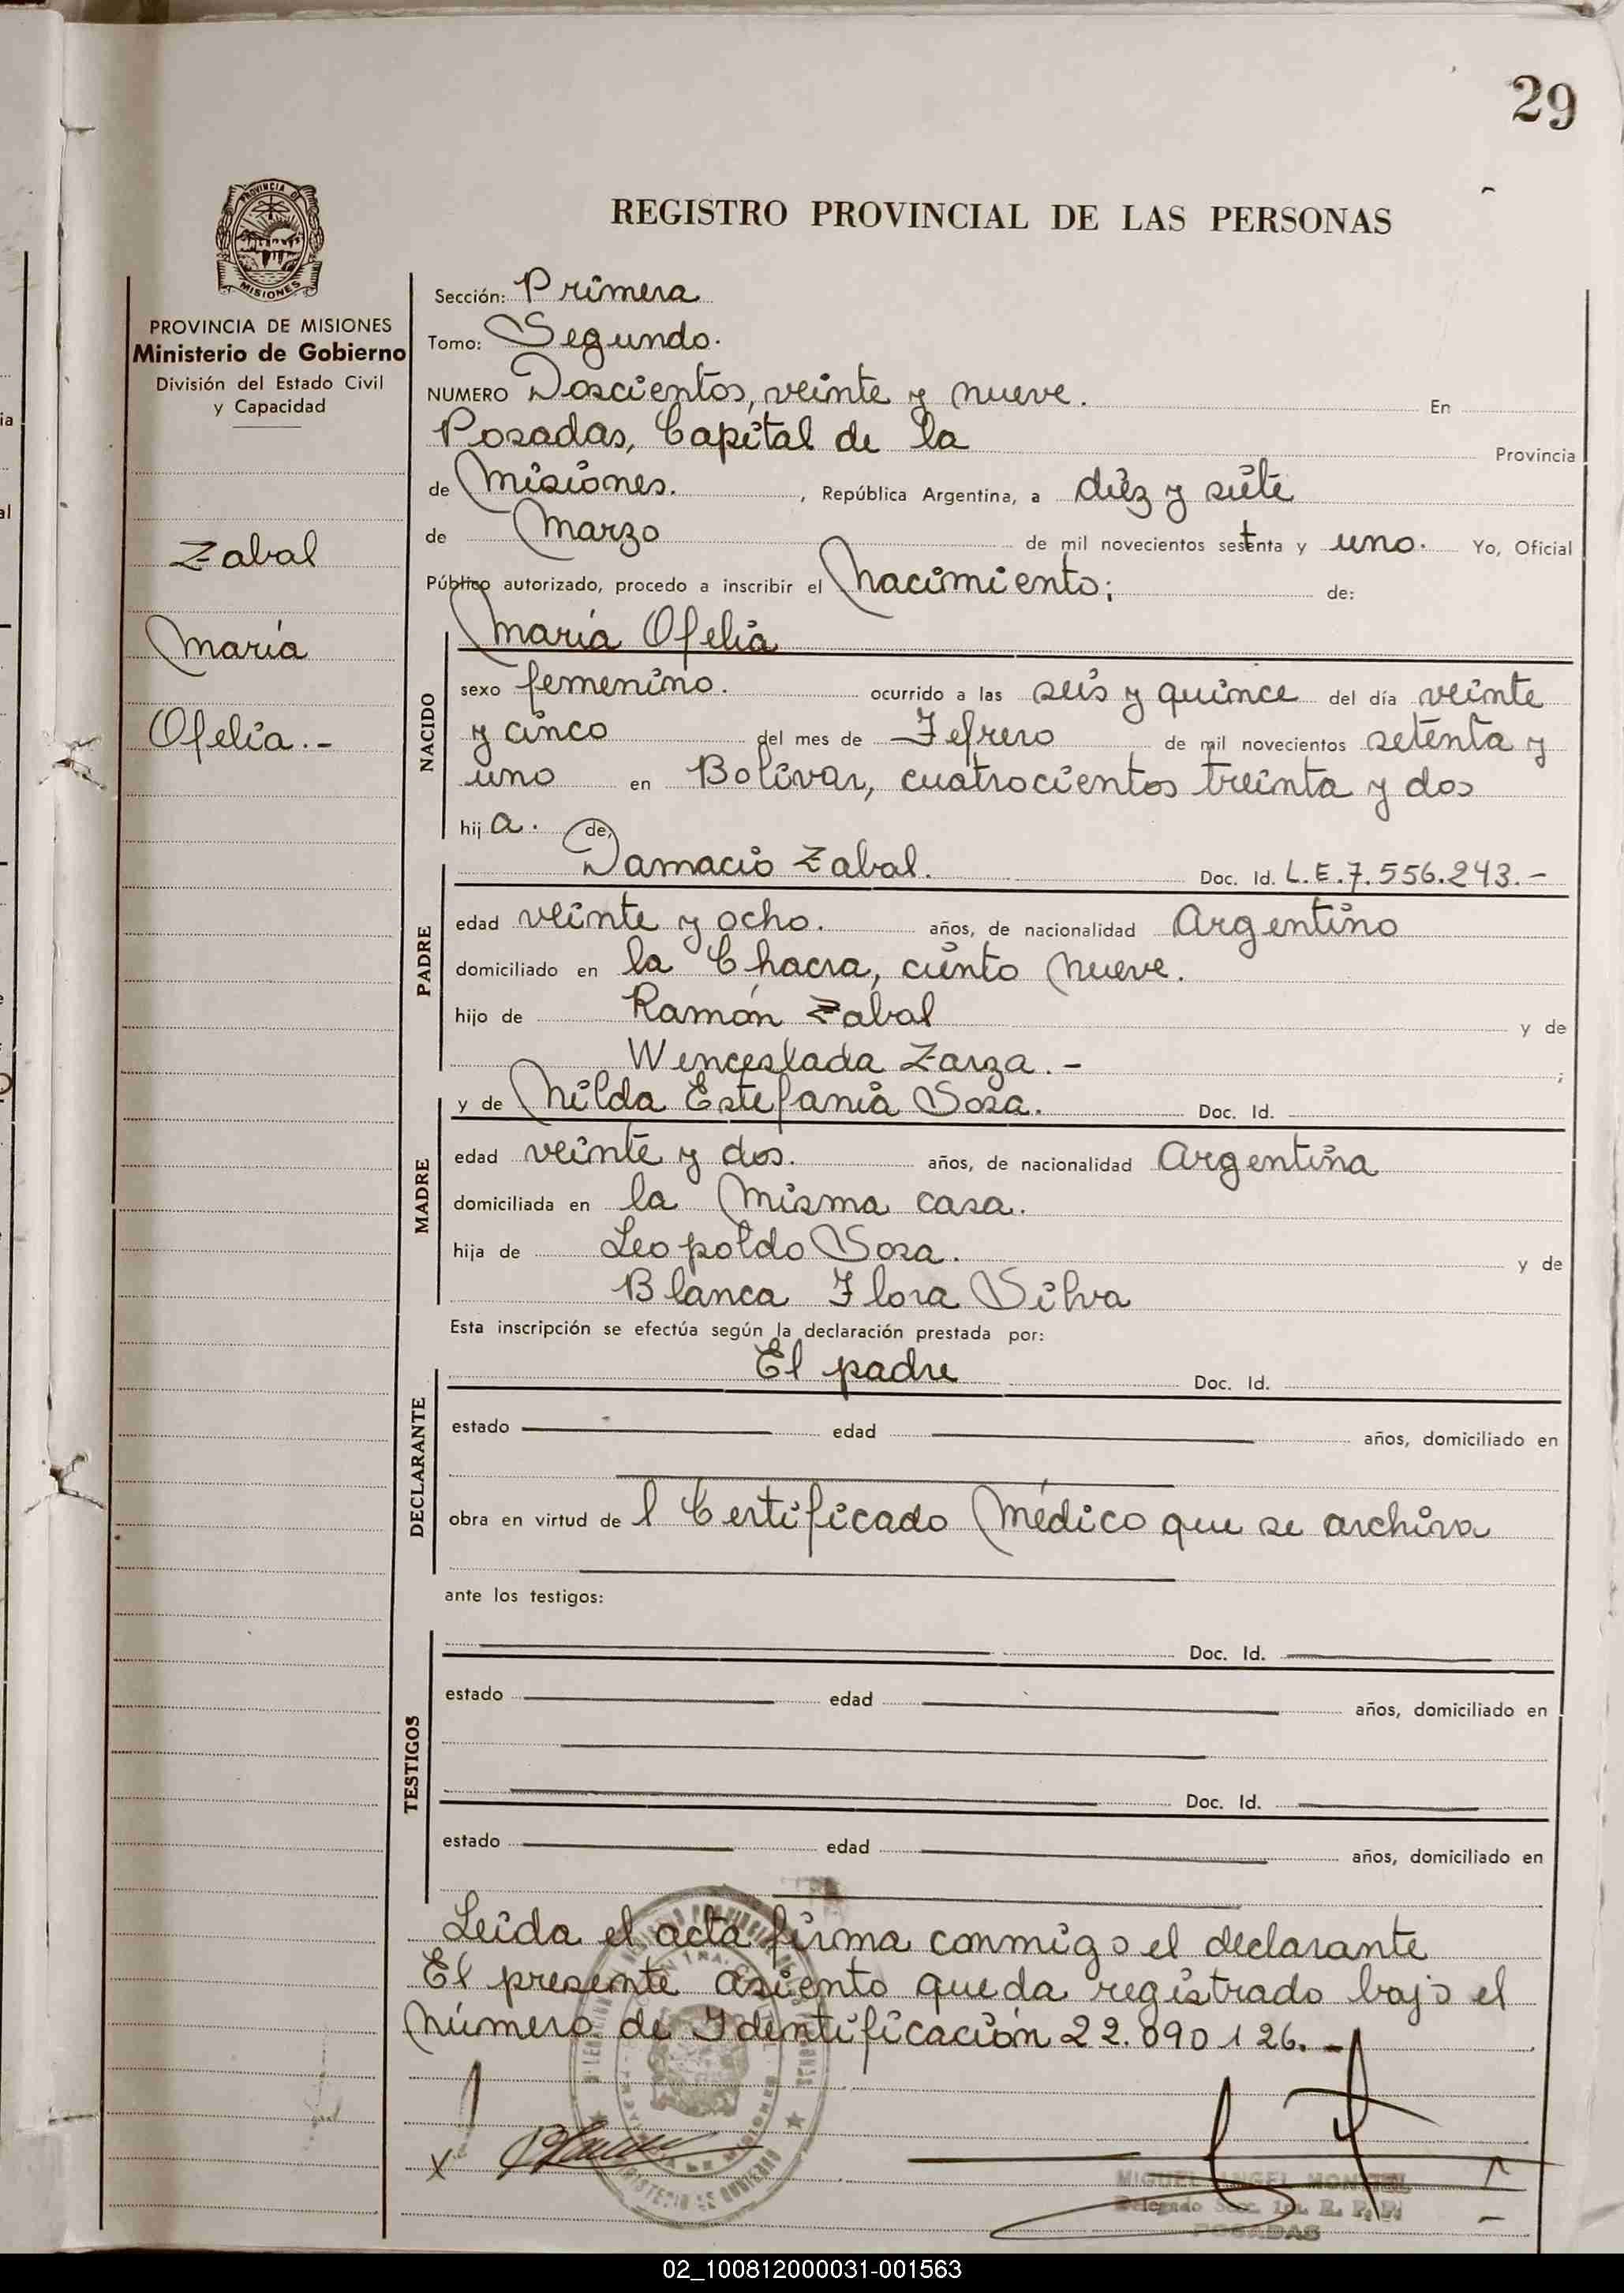 29
REGISTRO PROVINCIAL DE LAS PERSONAS
PROVINCIA DE
MISIONES
PROVINCIA DE MISIONES
Ministerio de Gobierno
División del Estado Civil
y Capacidad
Zabal
María
Ofelia.-
Sección: Primera
Tomo: Segundo.
NUMERO Doscientos, veinte y nueve. En
Posadas, Capital de la Provincia
de Misiones. , República Argentina, a diez y siete
de Marzo de mil novecientos setenta y uno. Yo, Oficial
Público autorizado, procedo a inscribir el Nacimiento; de:
María Ofelia
NACIDO
sexo femenino. ocurrido a las seis y quince del día veinte
y cinco del mes de Fefrero de mil novecientos setenta y
uno en Bolívar, cuatrocientos treinta y dos
hija. de,
Damacio Zabal. Doc. Id. L.E.7.556.243.-
PADRE
edad veinte y ocho. años, de nacionalidad Argentino
domiciliado en la Chacra, ciento nueve.
hijo de Ramón Zabal y de
Wenceslada Zarza.- ;
y de Nilda Estefania Sosa. Doc. Id.
MADRE
edad veinte y dos. años, de nacionalidad Argentina
domiciliada en la misma casa.
hija de Leopoldo Sosa. y de
Blanca Flora Silva
Esta inscripción se efectúa según la declaración prestada por:
El padre Doc. Id.
DECLARANTE
estado edad años, domiciliado en
obra en virtud del Certificado Médico que se archiva
ante los testigos:
Doc. Id.
TESTIGOS
estado edad años, domiciliado en
Doc. Id.
estado edad años, domiciliado en
Leída el acta firma conmigo el declarante
El presente asiento queda registrado bajo el
Número de Identificación 22.090126.-
MIGUEL ANGEL
Delegado Secc. 1ra. R. P. P.
POSADAS
02_100812000031-001563